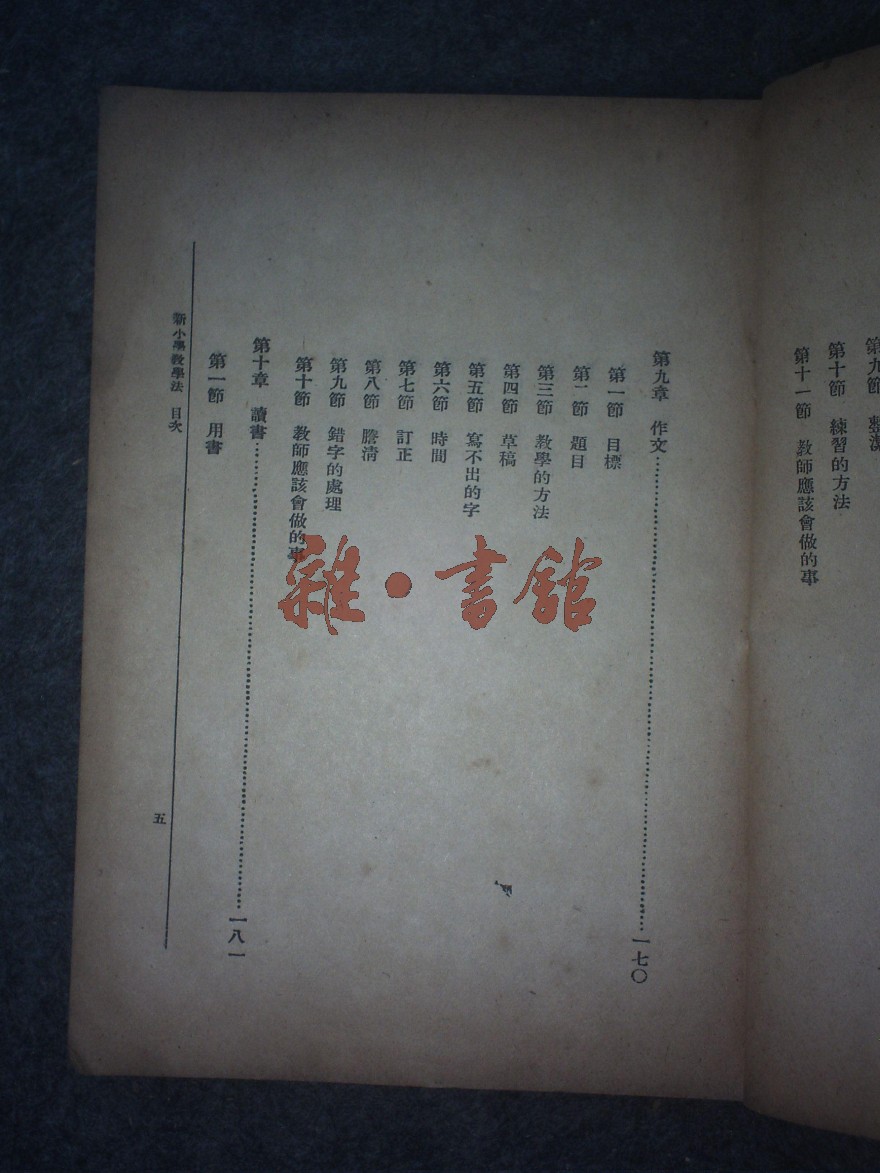 第十節 練習的方法
第十一節 教師應該會做的事
第九章 作文……一七〇
第一節 目標
第二節 題目
第三節 教學的方法
第四節 草稿
第五節 寫不出的字
第六節 時間
第七節 訂正
第八節 謄清
第九節 錯字的處理
第十節 教師應該會做的事
第十章 讀書……一八一
第一節 用書
新小學教學法 目次
五
雜·書館